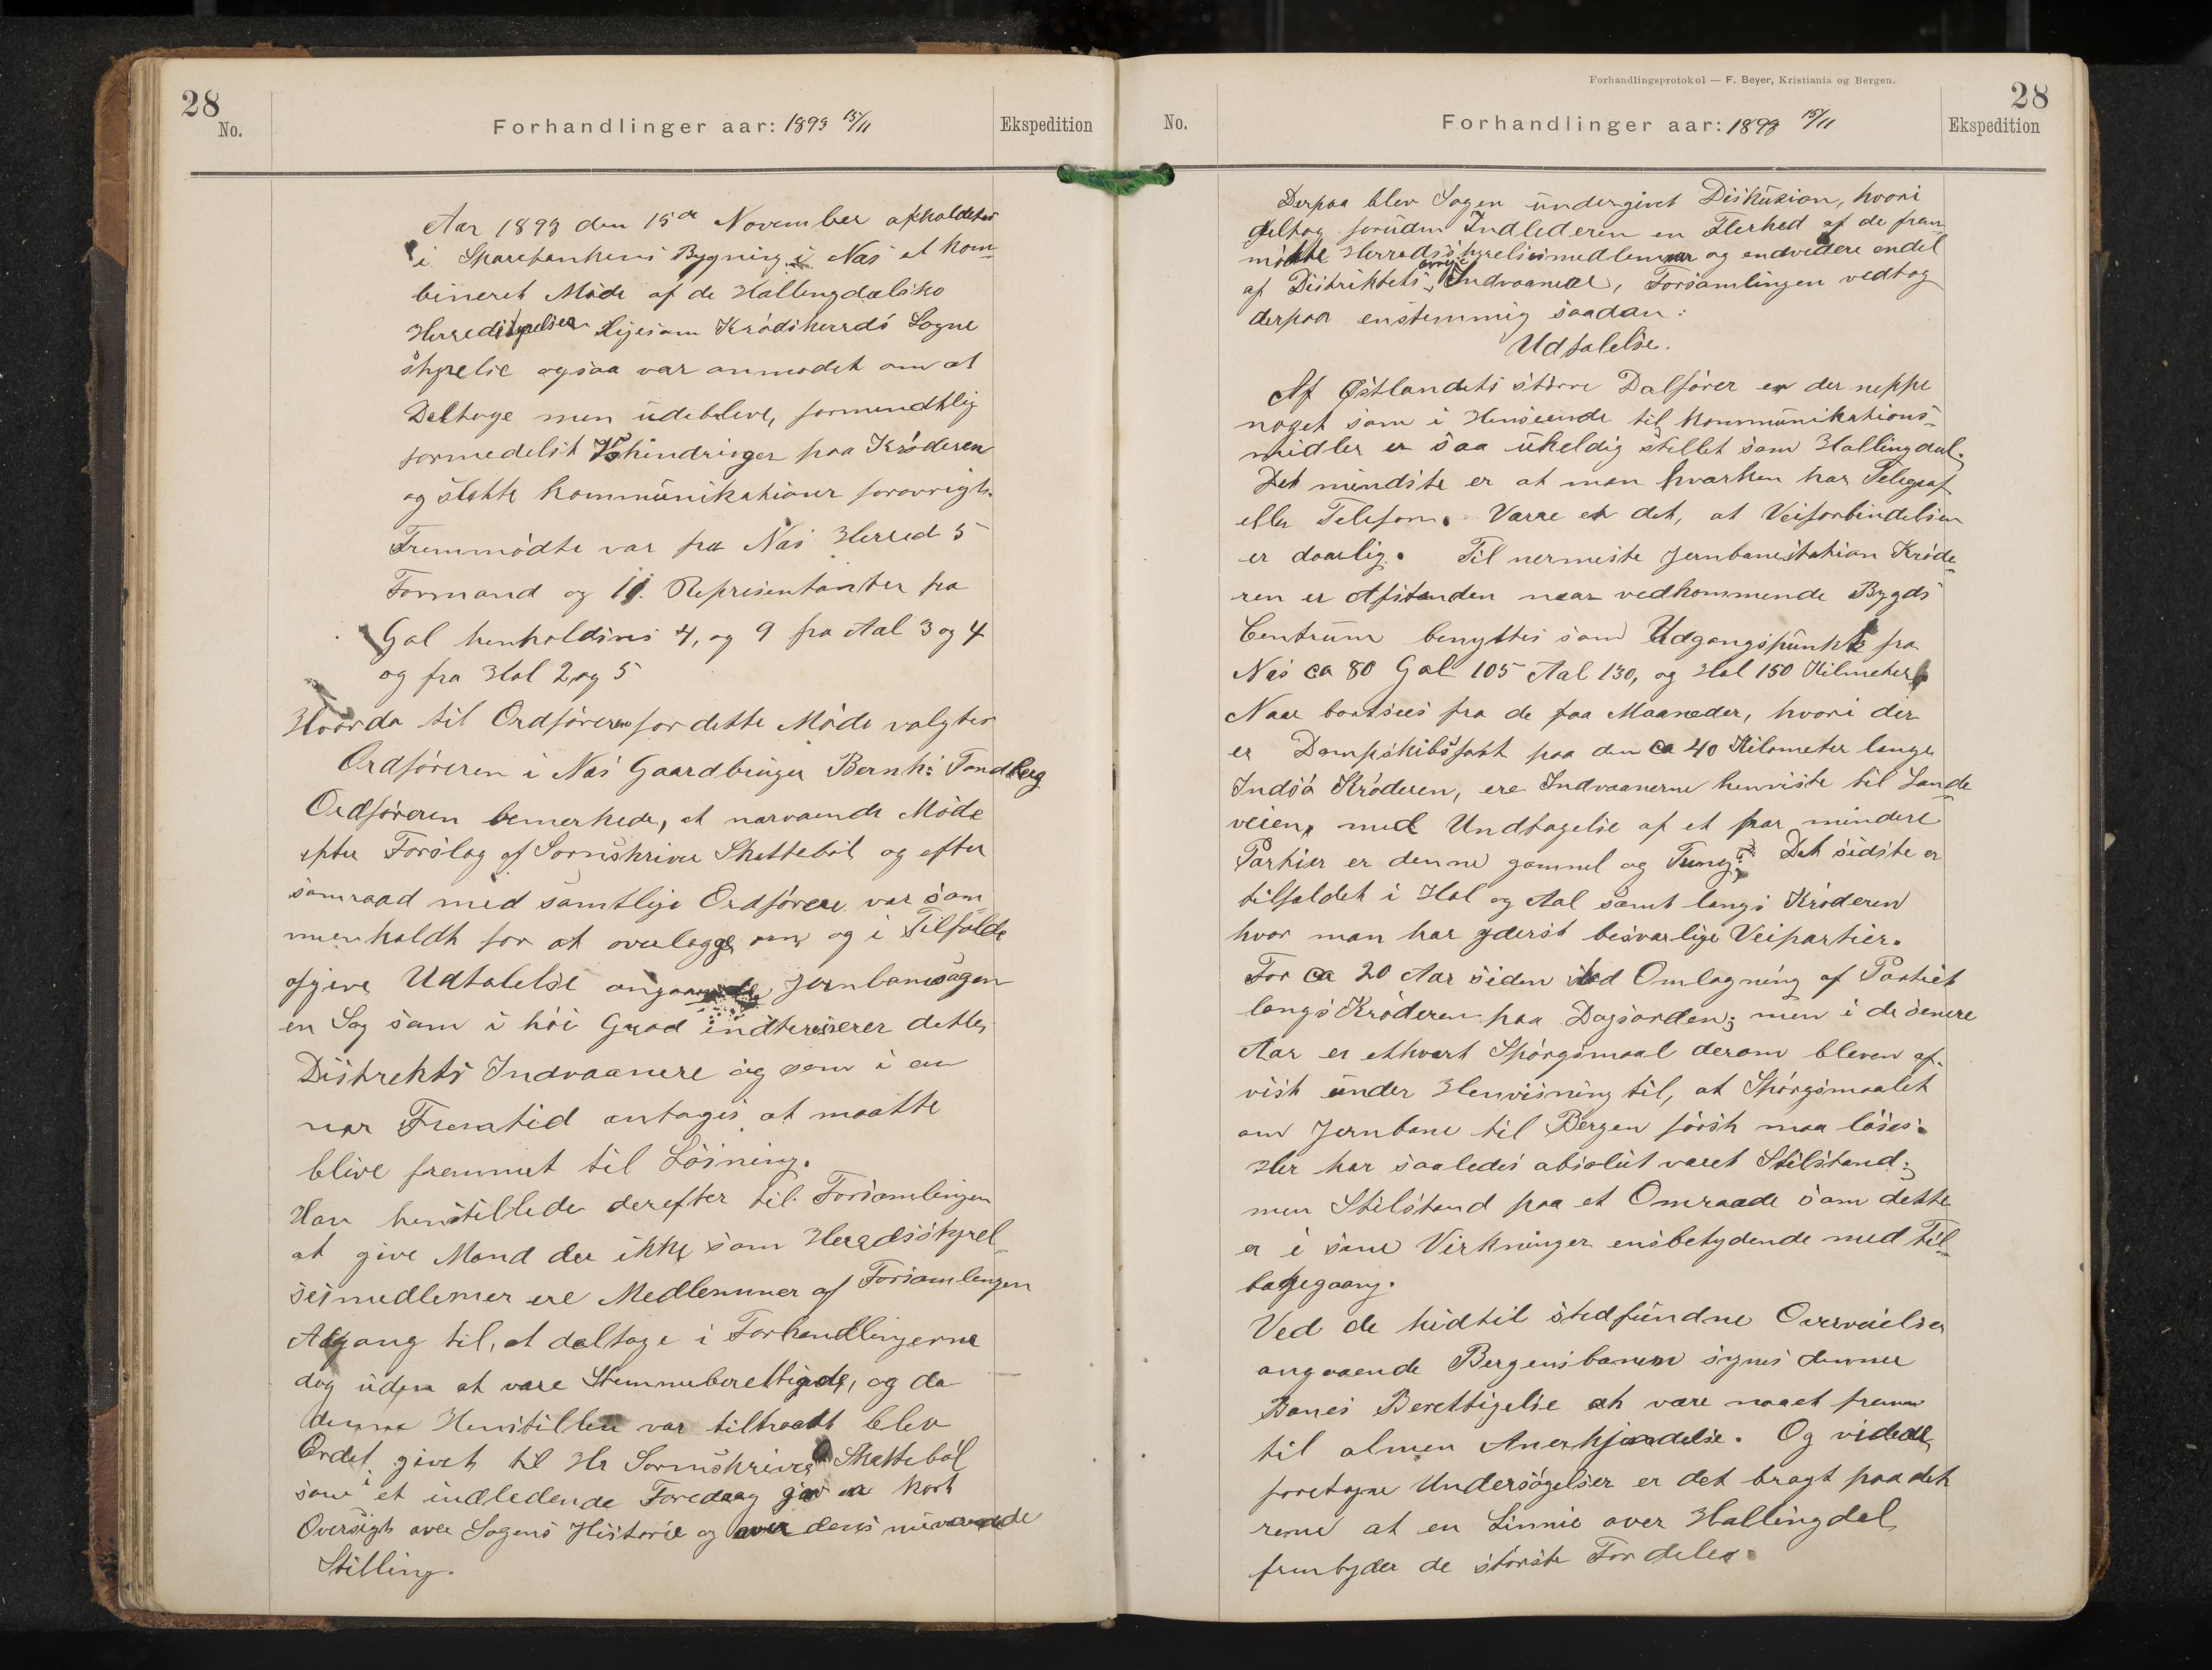 28
No.
Forhandlinger aar: 1893 15/11
Ekspedition
Aar 1893 den 15de November afholdtes
i Sparebankens Bygning i Næs et kom-
bineret Møde af de Hallingdalske
Herredstyrelser ligesom Krødsherreds Sogne
styrelse ogsaa var anmodet om at
Deltage men udebleve, formendtlig
formedelst Ishindringer paa Krøderen
og slette kommunikationer forøvrigt.
Fremmødte var fra Næs Herred 5
Formænd og 11 Representanter fra
Gol henholdsvis 4, og 9 fra Aal 3 og 4
og fra Hol 2 og 5
Hvorda til Ordføreren for dette Møde valgtes
Ordføreren i Næs Gaardbruger Bernh:
Ordføreren bemerkede, at nærværende Møde
efter Forslag af Sorenskriver Skattebøl og efter
samraad med samtlige Ordførere var sam
menkaldt for at overlægge om og i Tilfælde
afgive Udtalelse angaaende Jernbanesagen
en Sag som i høi Grad indteresserer dette
Distrekts Indvaanere og som i en
nær Fremtid antages at maatte
blive fremmet til Løsning.
Han henstillede derefter til Forsamlingen
at give Mænd der ikke som Herredsstyrel-
sesmedlemer ere Medlemmer af Forsamlingen
Adgang til, at deltage i Forhandlingerne
dog uden at være Stemmeberettigede, og da
denne Henstillen var tiltraadt blev
Ordet givet til Hr Sorenskriver Skattebøl
som i et indledende Foredrag gav en kort
Oversigt over Sagens Historie og over dens nuværende
Stilling.
Forhandlingsprotokol — F. Beyer, Kristiania og Bergen.
28
No.
Forhandlinger aar: 1893 15/11
Ekspedition
Derpaa blev Sagen undergivet Diskusion, hvori
deltog foruden Indlederen en Flerhed af de frem
mødte Herredsstyrelsesmedlemmer og endvidere endel
af Distriktets øvrige Indvaanere, Forsamlingen vedtog
derpaa enstemmig saadan:
Udtalelse.
Af Østlandets større Dalfører er der neppe
noget som i Henseende til kommunikations-
midler er saa uheldig stillet som Hallingdal.
Det mindste er at man hvarken har Telegraf
eller Telefon. Værre er det, at Veiforbindelsen
er daarlig. Til nermeste Jernbanestation Krøde-
ren er Afstanden naar vedkommende Bygds
Centrum benyttes som Udgangspunkt fra
Næs ca 80 Gol 105 Aal 130, og Hol 150 Kilmeter
Naar bortsees fra de faa Maaneder, hvori der
er Dampskibsfart paa den ca 40 Kilometer lange
Indsø Krøderen, ere Indvaanerne henviste til Lande
veien, med Undtagelse af et par mindre
Partier er denne gammel og Tung. Det sidste er
tilfældet i Hol og Aal samt langs Krøderen
hvor man har yderst besværlige Veipartier.
For ca 20 Aar siden stod Omlægning af Partiet
langs Krøderen paa Dagsorden; men i de senere
Aar er ethvert Spørgsmaal derom bleven af-
vist under Henvisning til, at Spørgsmaalet
om Jernbane til Bergen først maa løses.
Her har saaledes absolut været Stilstand;
men Stilstand paa et Omraade som dette
er i sine Virkninger ensbetydende med Til-
bagegaang.
Ved de hidtil stedfundne Overveielser
angaaende Bergensbanen synes denne
Banes Berettigelse at være naaet frem
til almen Anerkjendelse. Og videde
foretagne Undersøgelser er det bragt paa det
rene at en Linnie over Hallingdal
frembyder de største Fordeler.